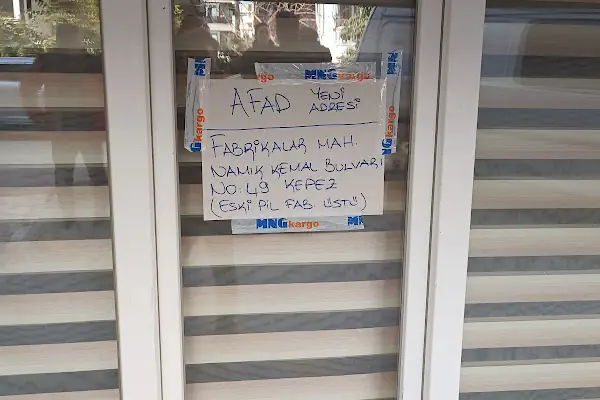 MNG kargo
AFAD YENİ ADRESİ
FABRİKALAR MAH.
NAMIK KEMAL BULVARI
NO:49 KEPEZ
(ESKİ PİL FAB. ÜSTÜ)
MNG kargo
kargo
MNG kargo
MNG